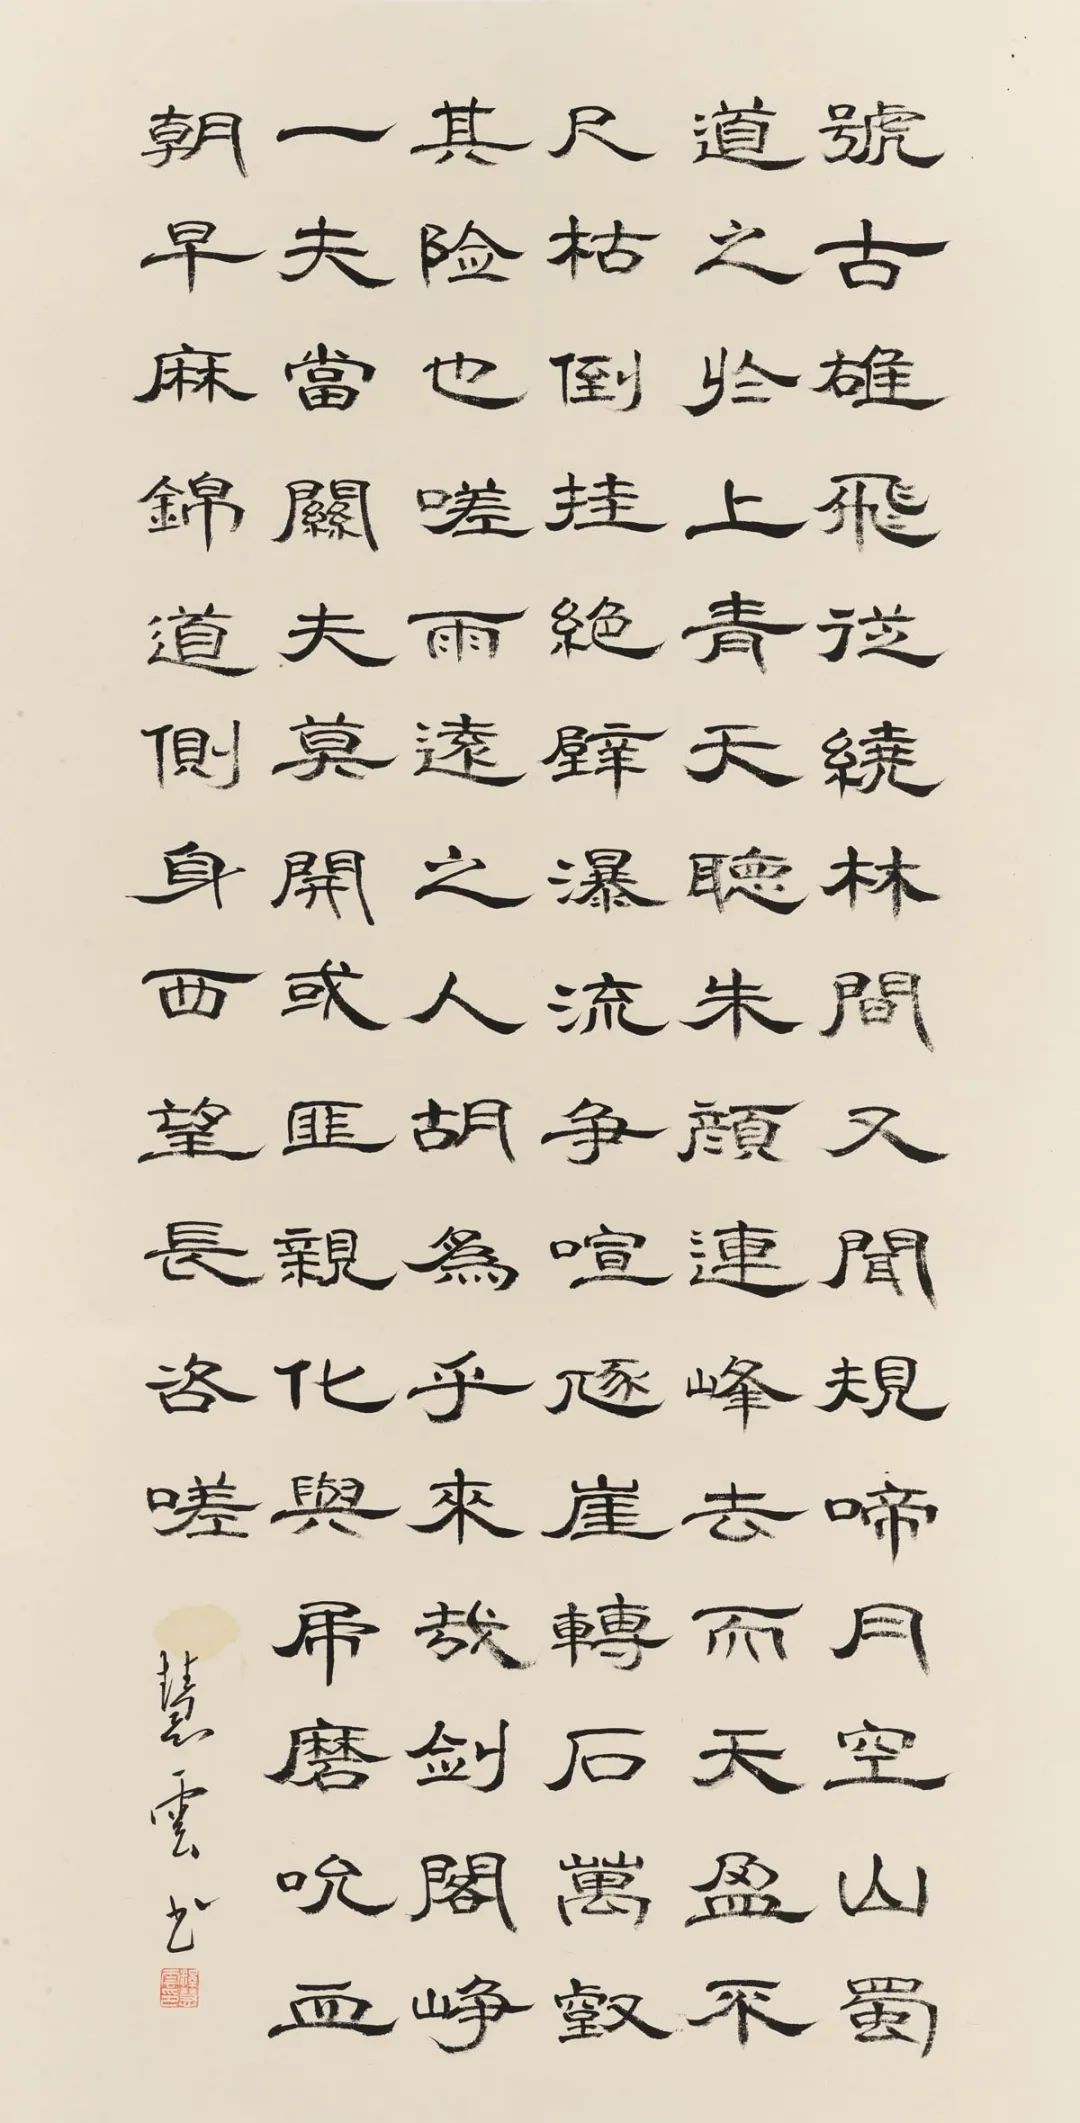 號古雄飛從繞林間又聞規啼月空山蜀
道之於上青天聽朱顔連峰去而天盈不
尺枯倒挂絶壁瀑流争喧豗崖轉石萬壑
其险也嗟雨遠之人胡為乎來哉剑閣峥
一夫當關夫莫開或匪親化與磨吮血
朝早麻錦道側身西望長咨嗟
慧雲书